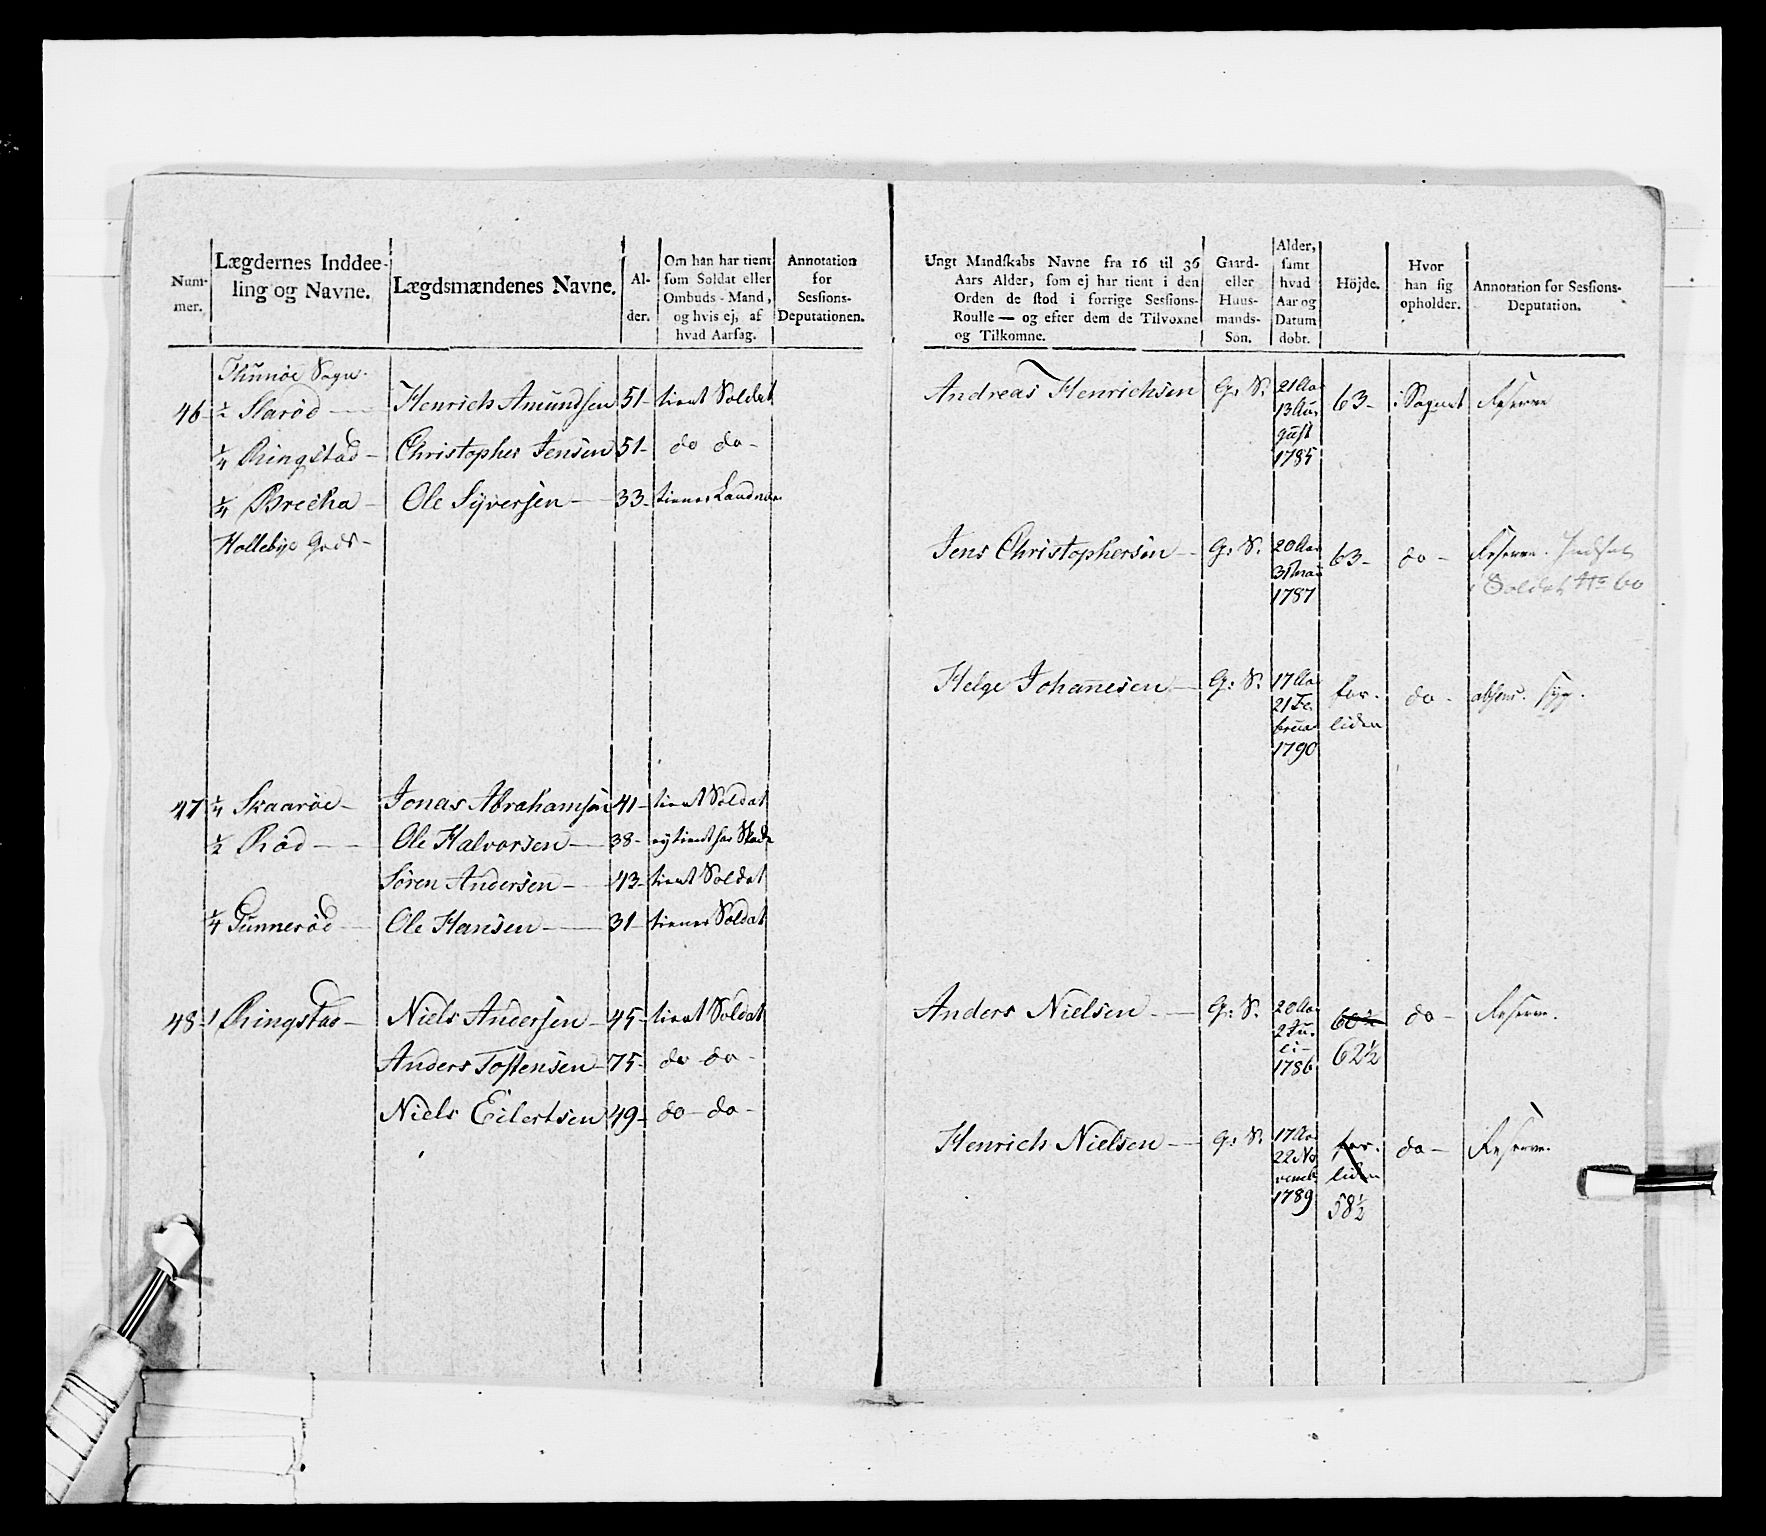 Num-
mer.
Lægdernes Inddee-
ling og Navne.
Lægdsmændenes Navne.
Al-
der.
Om han har tient
som Soldat eller
Ombuds-Mand,
og hvis ej, af
hvad Aarsag.
Annotation
for
Sessions-
Deputationen.
Thunöe Sogn.
46 - ½ Slaröd - Henrich Amundsen 51 - tient Soldat
¼ Ringstad - Christopher Jensen 51 - do do -
¼ Brecka - Ole Syversen - 33 - tiener Landver
Hollebye Gods -
47 ¼ Skaaröe - Jonas Abrahamsen 41 - tient Soldat
½ Röd - Ole Halvorsen - 38 - ey tient for Skade
Sören Andersen - 43 - tient Soldat
¼ Gunneröd - Ole Hansen - 31 - tiener Soldat
48 - 1 Ringstad - Niels Andersen - 45 - tient Soldat
Anders Tostensen - 75 - do do -
Niels Eilertsen 49 - do - do -
Ungt Mandskabs Navne fra 16 til 36
Aars Alder, som ej har tient i den
Orden de stod i forrige Sessions-
Roulle — og efter dem de Tilvoxne
og Tilkomne.
Gaard-
eller
Huus-
mands-
Søn.
Alder,
samt
hvad
Aar og
Datum
døbt.
Höjde.
Hvor
han sig
opholder.
Annotation for Sessions-
Deputation.
Andreas Henrichsen G: S: 21 Aar 63 - i Sognet Reserve
13 Au-
gust
1785
Jens Christophersen - G: S: 20 Aar 63 - do - Reserve. Indsat
31 Mai i Soldat No 60
1787
Helge Johannesen - G: S: 17 Aar for- do - absens. syg.
21 Fe- liden
bruar
1790
Anders Nielsen - G: S: 20 Aar 60½ do - Reserve.
2 Ju-
li - 62½
1786
Henrich Nielsen - G: S: 17 Aar for- do - Reserve.
22 No- liden
vemb
1789 58½